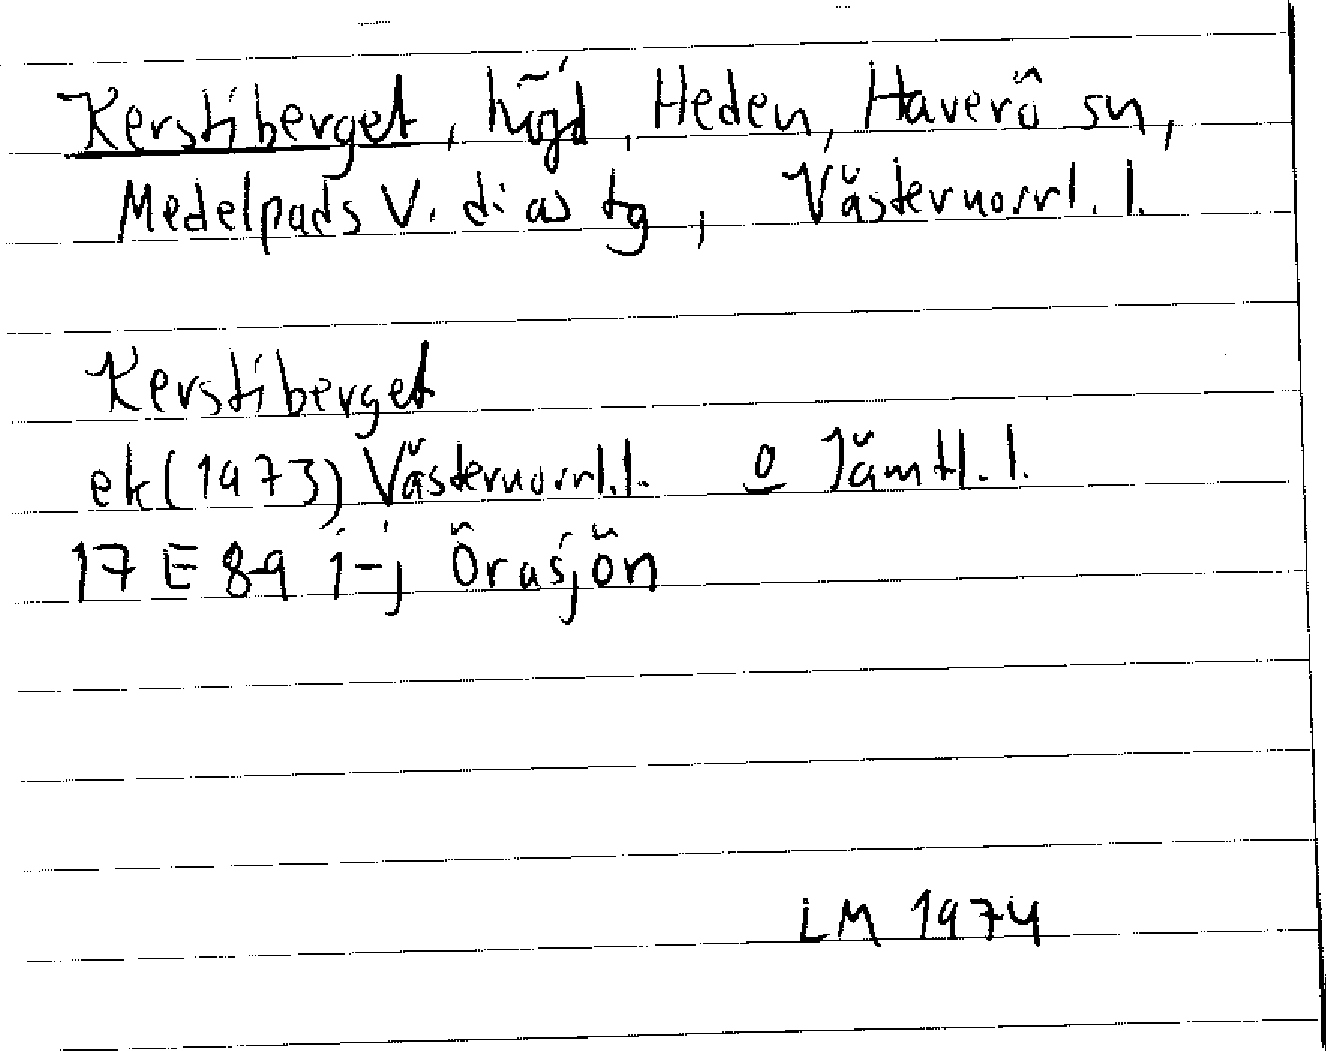 Kerstiberget, höjd, Heden, Haverö sn,
Medelpads V. di as tg, Västernorrl. l.
Kerstiberget
ek (1973) Västernorrl. l. o Jämtl. l.
17 E 8-9 i-j Örasjön
LM 1974